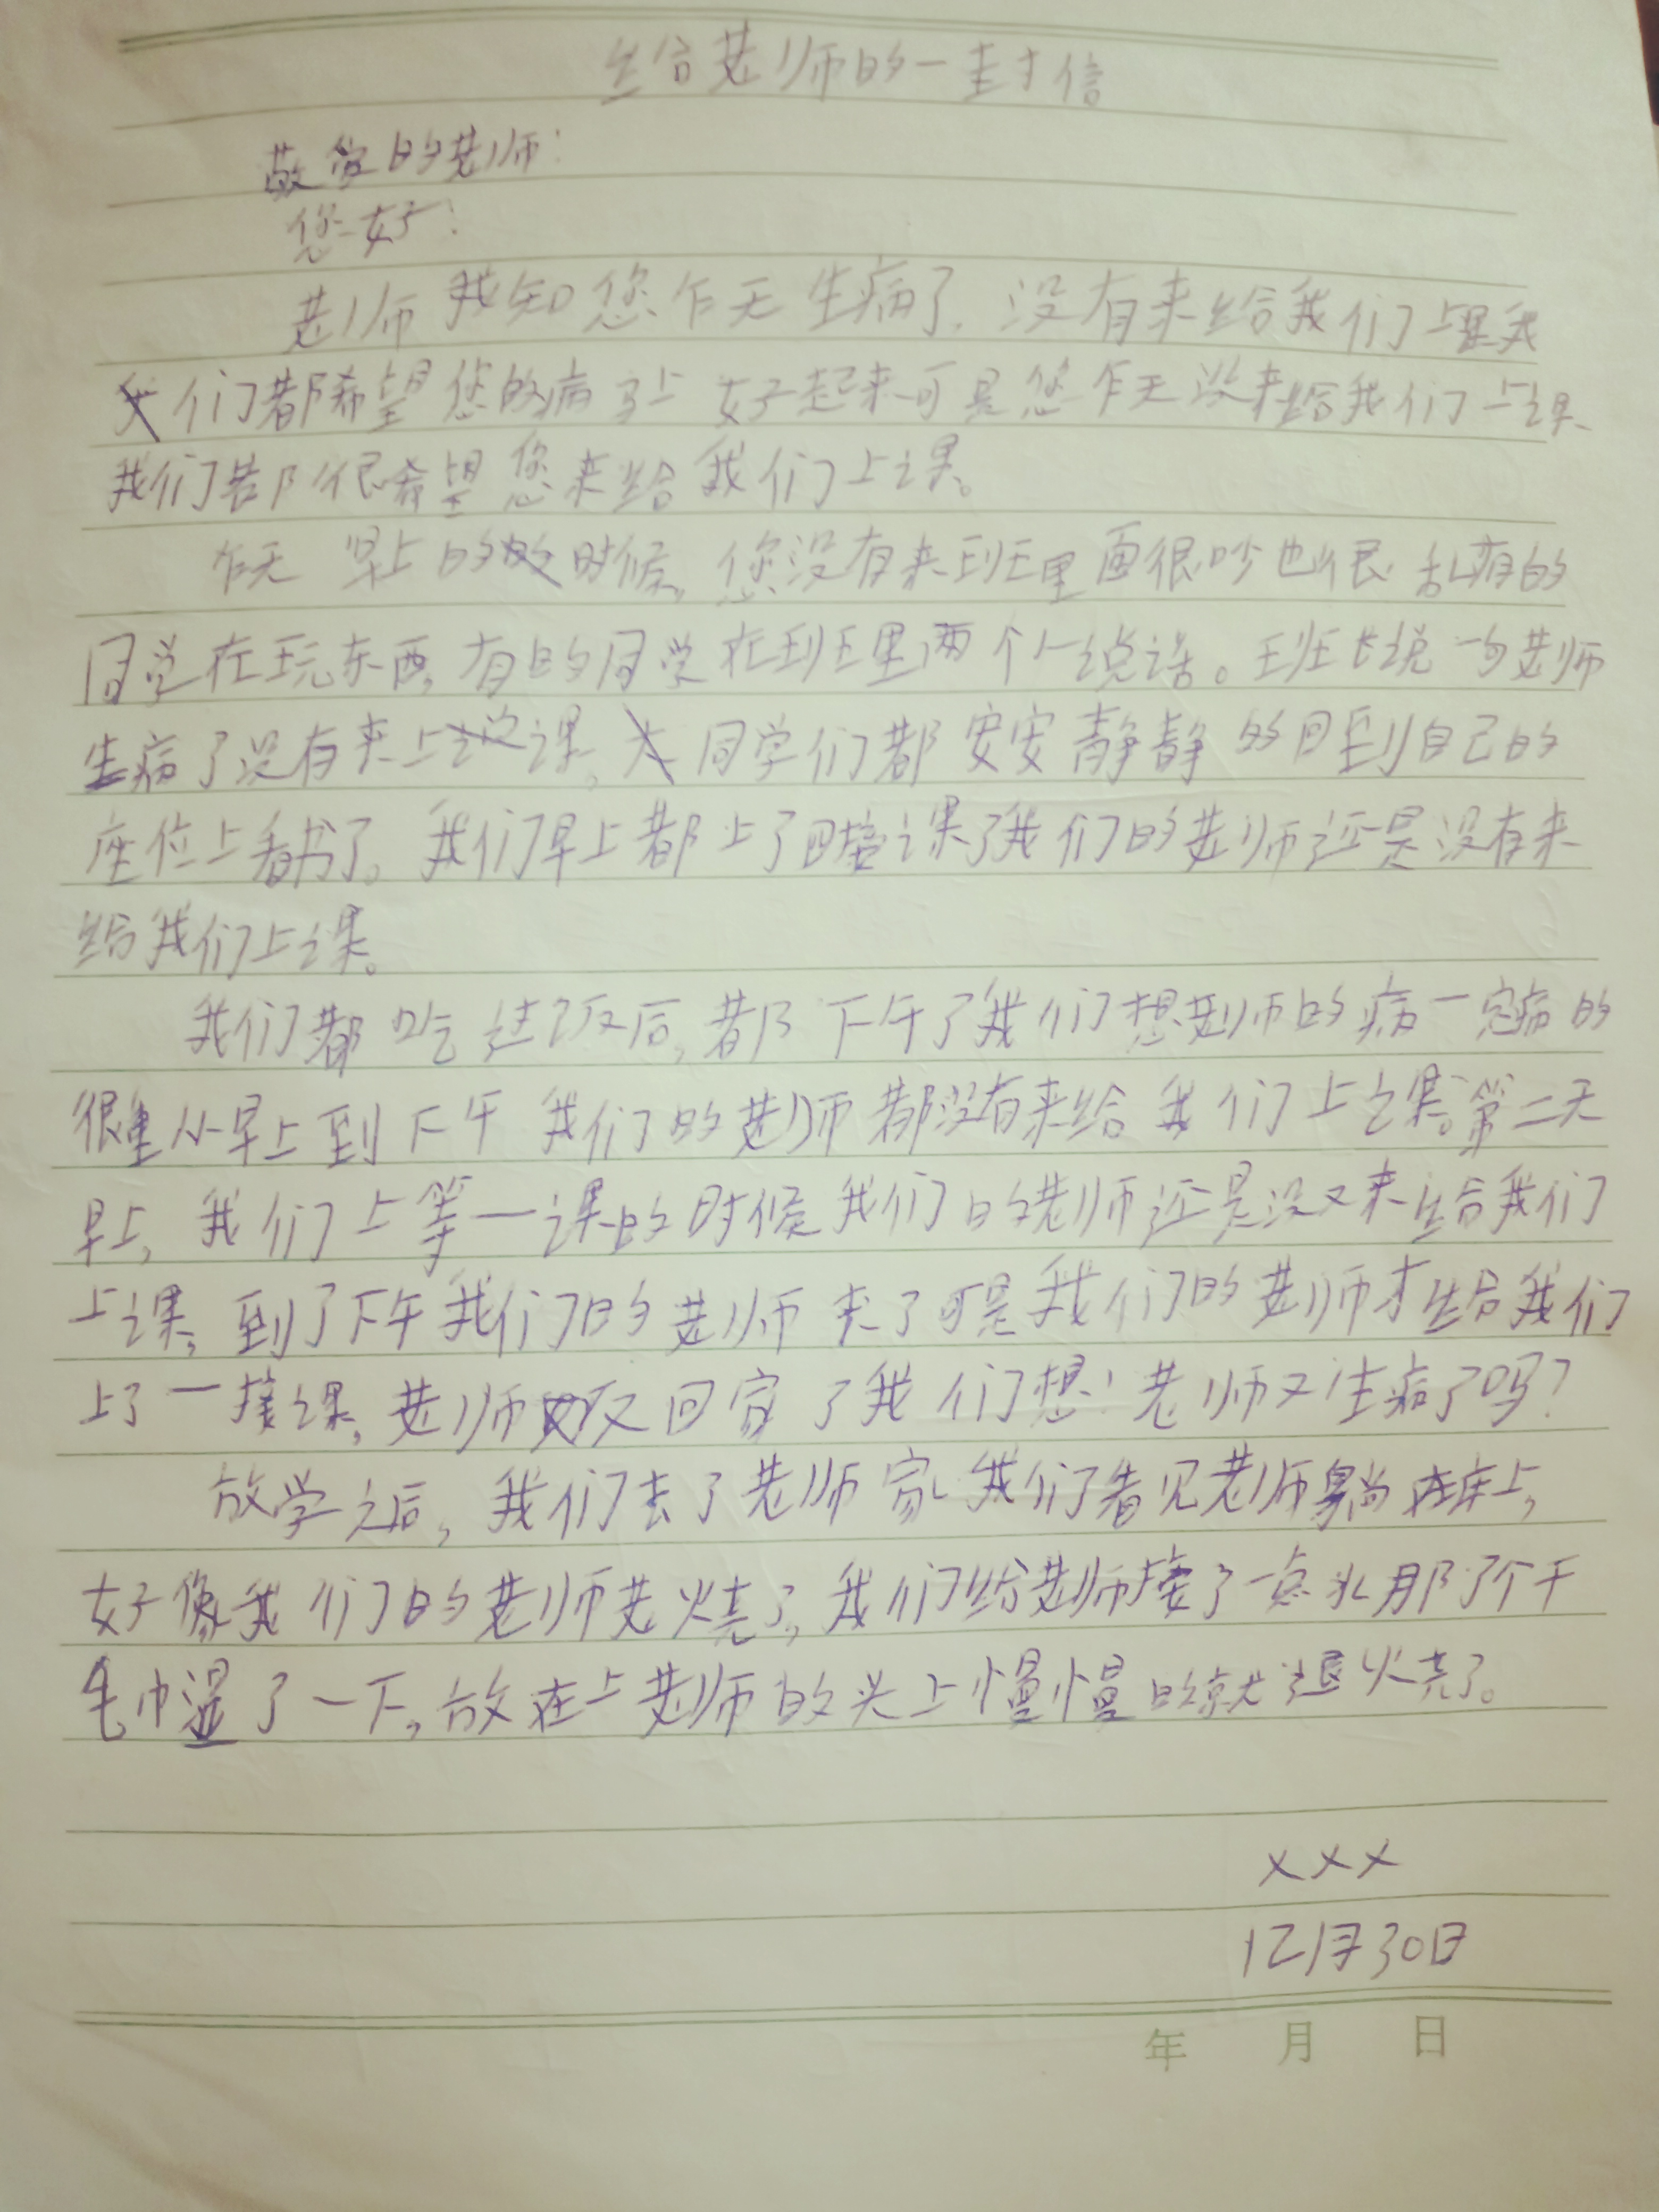 给老师的一封信
敬爱的老师:
您好!
老师我知您乍天生病了,没有来给我们上课我
们都希望您的病马上好起来可是您乍天没来给我们上课、
我们都很希望您来给我们上课。
乍天早上的时候,您没有来班里面很吵也很乱有的
同学在玩东西,有的同学在班里两个人说话。班长说一句老师
生病了没有来上课。同学们都安安静静的回到自己的
座位上看书了。我们早上都上了四接课了我们的老师还是没有来
给我们上课。
我们都吃过饭后,都下午了我们想老师的病一定病的
很重从早上到下午我们的老师都没有来给我们上课。第二天
早上,我们上等一课的时候我们的老师还是没又来给我们
上课,到了下午我们的老师来了可是我们的老师才给我们
上了一接课,老师又回家了我们想:老师又生病了吗?
放学之后,我们去了老师家我们看见老师躺在床上,
好像我们的老师老烧了,我们给老师接了一点水那了个干
毛巾湿了一下,放在上老师的头上慢慢的就退烧了。
×××
12月30日
年 月 日